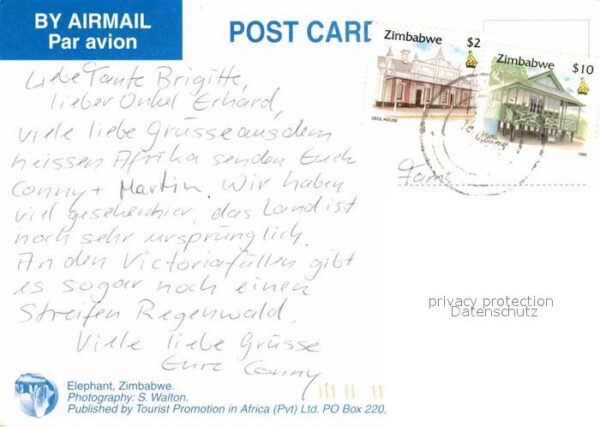 BY AIRMAIL
Par avion
POST CARD
Zimbabwe
$2
CECIL HOUSE
Zimbabwe
$10
1995
Liebe Tante Brigitte,
lieber Onkel Erhard,
viele liebe Grüsse aus dem
heissen Afrika senden Euch
Conny + Martin. Wir haben
viel gesehen hier, das Land ist
noch sehr ursprünglich.
An den Victoriafällen gibt
es sogar noch einen
Streifen Regenwald.
Viele liebe Grüsse
Eure Conny
Fam.
privacy protection
Datenschutz
Elephant, Zimbabwe.
Photography: S. Walton.
Published by Tourist Promotion in Africa (Pvt) Ltd. PO Box 220,